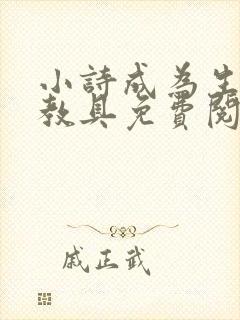 小詩成為生
教具免費閱
戚正武